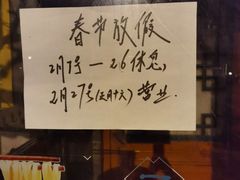 春节放假
2月7号一26休息
2月27号(正月十六)营业.